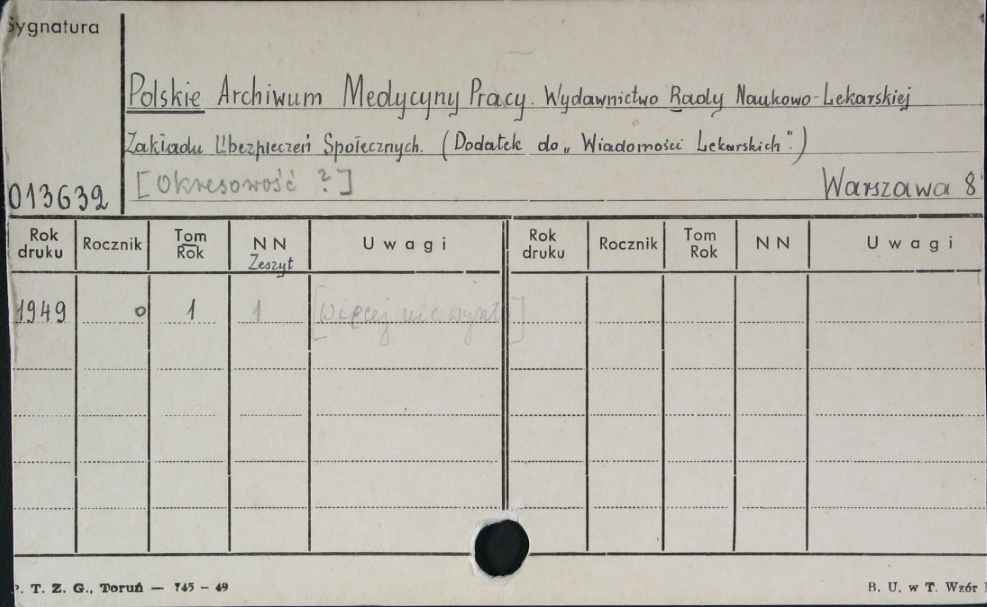 Sygnatura
Polskie Archiwum Medycyny Pracy. Wydawnictwo Rady Naukowo-Lekarskiej
Zakładu Ubezpieczeń Społecznych. (Dodatek do „Wiadomości Lekarskich".)
013639 [Okresowość ?] Warszawa 8°
Rok druku Rocznik Tom Rok NN Zeszyt Uwagi Rok druku Rocznik Tom Rok NN Uwagi
1949 0 1 1 [Więcej nie wyszło]
P. T. Z. G., Toruń — 745 – 49 B. U. w T. Wzór